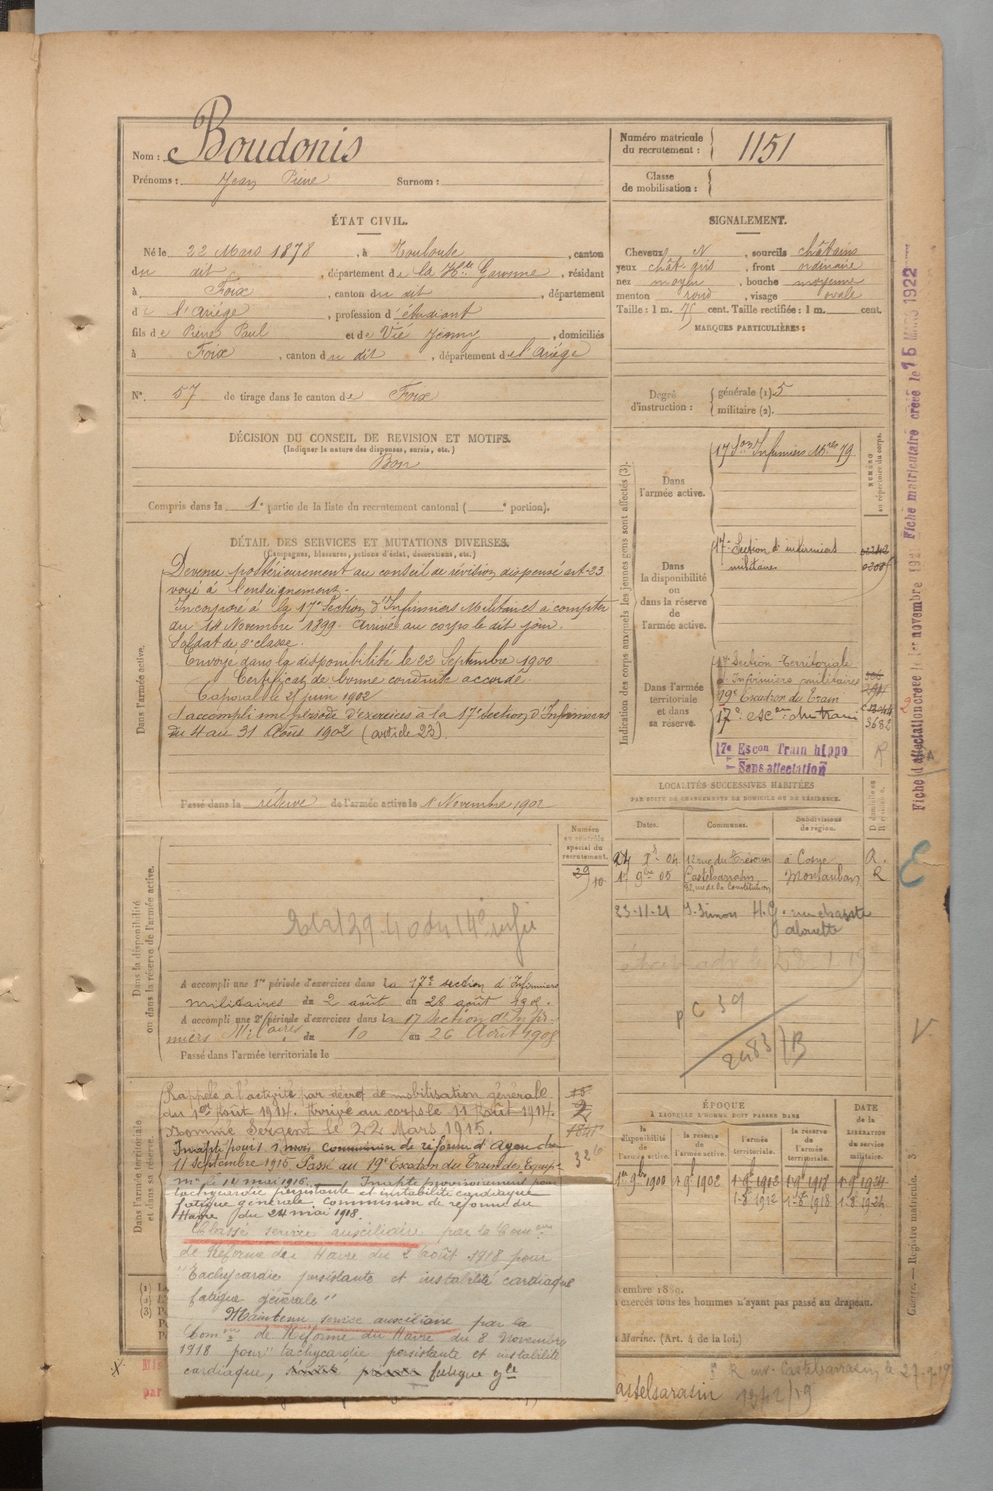 Nom : Boudonis
Prénoms : Jean Pierre Surnom :
Numéro matricule du recrutement : 1151
Classe de mobilisation :
ÉTAT CIVIL.
Né le 22 Mars 1878, à Toulouse, canton
du dit, département de la Hte Garonne, résidant
à Foix, canton du dit, département
de l'Ariège, profession d'étudiant
fils de Pierre Paul et de Vié Jenny, domiciliés
à Foix, canton du dit, département de l'Ariège
N° 57 de tirage dans le canton de Foix
DÉCISION DU CONSEIL DE REVISION ET MOTIFS.
(Indiquer la nature des dispenses, sursis, etc.)
Bon
Compris dans la 1e partie de la liste du recrutement cantonal ( e portion).
SIGNALEMENT.
Cheveux N, sourcils châtains
yeux chât. gris, front ordinaire
nez moyen, bouche moyenne
menton rond, visage ovale
Taille : 1 m. 75 cent. Taille rectifiée : 1 m. cent.
MARQUES PARTICULIÈRES :
Degré d'instruction : générale (1) 5
militaire (2).
DÉTAIL DES SERVICES ET MUTATIONS DIVERSES.
(Campagnes, blessures, actions d'éclat, décorations, etc.)
Dans l'armée active.
Devenu postérieurement au conseil de révision dispensé art. 23
voué à l'enseignement.
Incorporé à la 17e Section d'Infirmiers Militaires à compter
du 14 Novembre 1899. Arrivé au corps le dit jour.
Soldat de 2e classe.
Envoyé dans la disponibilité le 22 Septembre 1900
Certificat de bonne conduite accordé.
Caporal le 21 juin 1902
A accompli une période d'exercices à la 17e section d'Infirmiers
du 4 au 31 Août 1902 (article 23).
Passé dans la réserve de l'armée active le 1 Novembre 1902
Indication des corps auxquels les jeunes gens sont affectés (3).
Dans l'armée active.
17 Son Infirmiers Mres 79
NUMÉRO au répertoire du corps.
Dans la disponibilité ou dans la réserve de l'armée active.
17e Section d'infirmiers
militaires
Dans l'armée territoriale et dans sa réserve.
17e Section Territoriale
d'Infirmiers militaires
19e Escadron du Train
17e escon du train
3682
17e Escon Train hippo
Sans affectation
R
LOCALITÉS SUCCESSIVES HABITÉES
PAR SUITE DE CHANGEMENTS DE DOMICILE OU DE RÉSIDENCE.
Dates. Communes. Subdivisions de région. D domicile ou R résidence.
à Cosne R.
1 9bre 05 Castelsarrasin Montauban R
82, rue de la Constitution
23-11-21 S. Simon H.G. rue chasste
alouette
P C 39
2483 B
Dans la disponibilité ou dans la réserve de l'armée active.
Numéro au contrôle spécial du recrutement.
29
10
A accompli une 1re période d'exercices dans la 17e section d'Infirmiers
militaires du 2 août au 28 août
A accompli une 2e période d'exercices dans la 17 Section d'Infirmiers
Milaires du 10 au 26 Août 1908
Passé dans l'armée territoriale le
Dans l'armée territoriale et dans sa réserve.
Rappelé à l'activité par décret de mobilisation générale
du 1er Août 1914. Arrivé au corps le 11 Août 1914.
Nommé Sergent le 22 Mars 1915.
Inapte pour 1 mois commission de réforme d'Agen du
11 septembre 1915. Passé au 19e Escadron du Train des Equip.
Inapte provisoirement pour
tachycardie persistante et instabilité cardiaque
fatigue générale. Commission de réforme du
Havre du 24 mai 1918.
Classé service auxiliaire par la Comon
de Réforme du Havre du 2 août 1918 pour
"Tachycardie persistante et instabilité cardiaque
fatigue générale"
Maintenu service auxiliaire par la
Comon de Réforme du Havre du 8 Novembre
1918 pour "tachycardie persistante et instabilité
cardiaque, fatigue gle
326
ÉPOQUE
À LAQUELLE L'HOMME DOIT PASSER DANS
DATE DE LA LIBÉRATION du service militaire.
la disponibilité de l'armée active. la réserve de l'armée active. l'armée territoriale. la réserve de l'armée territoriale.
1er 9bre 1900 1 9b 1902 1 9b 1912 1 9b 1918 1 9b 1924
1-8 1912 1-8 1918 1-8 1924
embre 1889.
exercés tous les hommes n'ayant pas passé au drapeau.
Marine. (Art. 4 de la loi.)
Castelsarrasin le 27-9-19
astelsarasin
Registre matricule. 3
Fiche matriculaire créée le 15 MARS 1922
Fiche d'affectation créée le 1er novembre 192